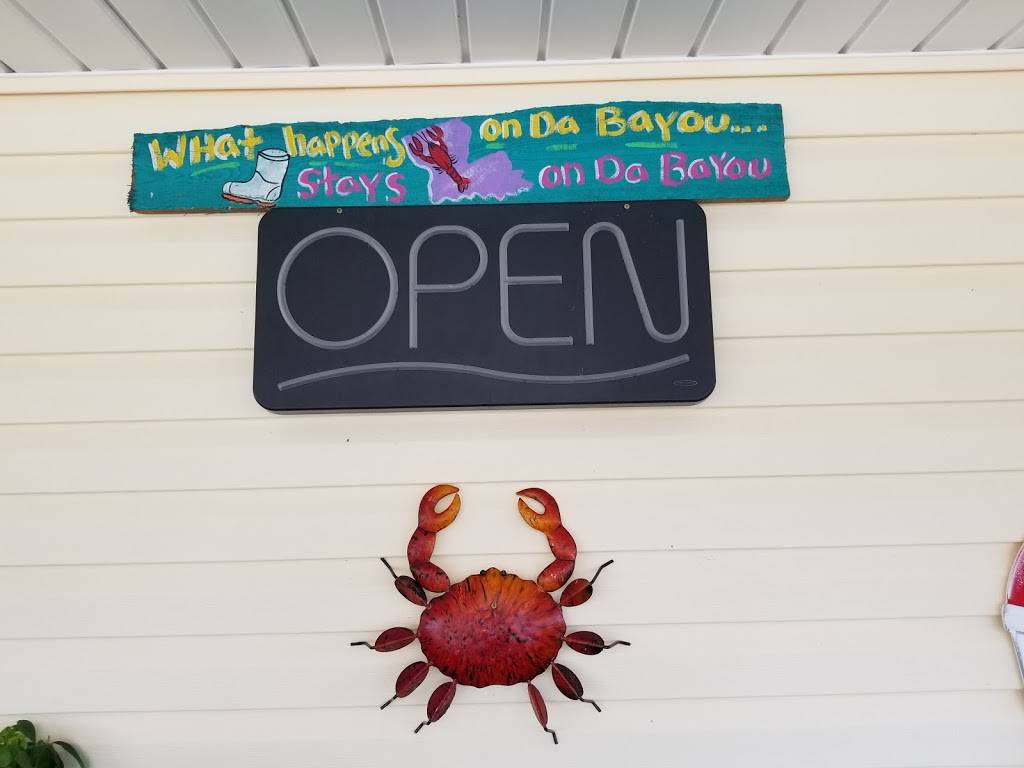 WHat happens on Da Bayou....
Stays on Da BaYou
OPEN